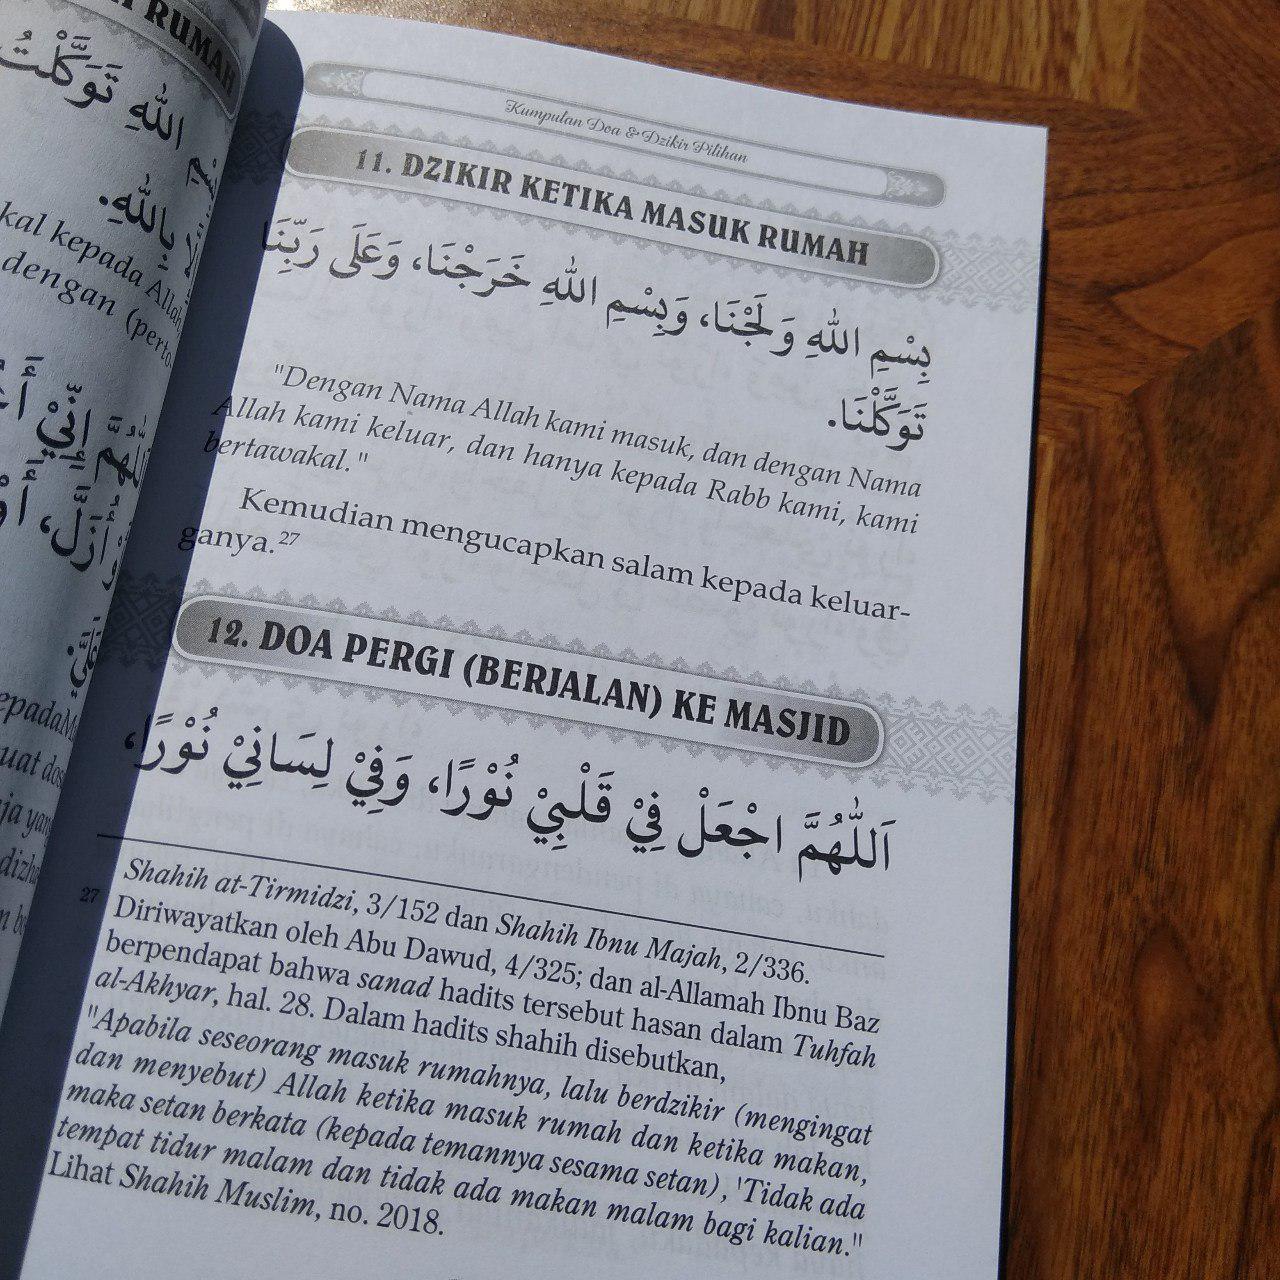 RUMAH
اللهِ تَوَكَّلْتُ
بِاللهِ.
kal kepada Allah,
dengan (perto-
epadaM
uat dos
ja yang
dizha
Kumpulan Doa & Dzikir Pilihan
11. DZIKIR KETIKA MASUK RUMAH
بِسْمِ اللهِ وَلَجْنَا، وَبِسْمِ اللهِ خَرَجْنَا، وَعَلَى رَبِّنَا
تَوَكَّلْنَا.
"Dengan Nama Allah kami masuk, dan dengan Nama
Allah kami keluar, dan hanya kepada Rabb kami, kami
bertawakal."
Kemudian mengucapkan salam kepada keluar-
ganya.27
12. DOA PERGI (BERJALAN) KE MASJID
اَللّٰهُمَّ اجْعَلْ فِيْ قَلْبِيْ نُوْرًا، وَفِيْ لِسَانِيْ نُوْرًا،
Shahih at-Tirmidzi, 3/152 dan Shahih Ibnu Majah, 2/336.
27 Diriwayatkan oleh Abu Dawud, 4/325; dan al-Allamah Ibnu Baz
berpendapat bahwa sanad hadits tersebut hasan dalam Tuhfah
al-Akhyar, hal. 28. Dalam hadits shahih disebutkan,
"Apabila seseorang masuk rumahnya, lalu berdzikir (mengingat
dan menyebut) Allah ketika masuk rumah dan ketika makan,
maka setan berkata (kepada temannya sesama setan), 'Tidak ada
tempat tidur malam dan tidak ada makan malam bagi kalian."
Lihat Shahih Muslim, no. 2018.